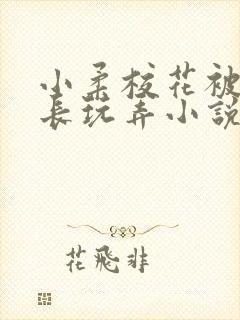 小柔校花被
长玩弄小說
花飛非